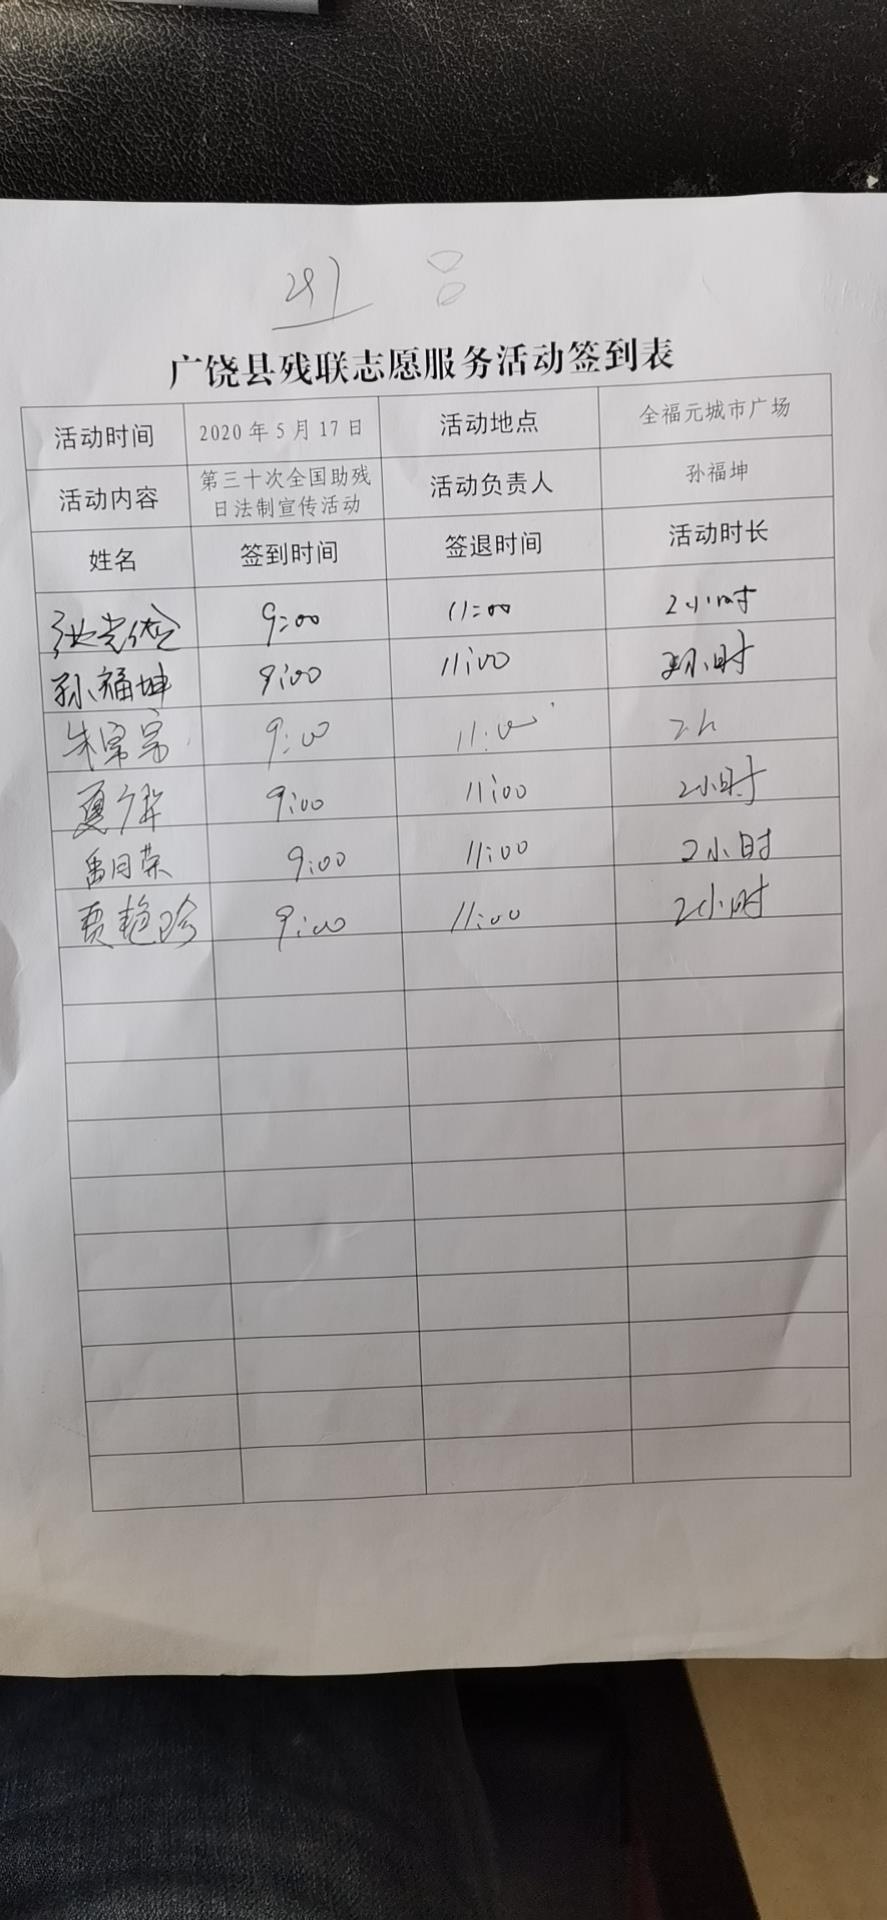 广饶县残联志愿服务活动签到表
活动时间 2020年5月17日 活动地点 全福元城市广场
活动内容 第三十次全国助残日法制宣传活动 活动负责人 孙福坤
姓名 签到时间 签退时间 活动时长
9:00 11:00 2小时
孙福坤 9:00 11:00 2小时
9:00 11:00 2h
9:00 11:00 2小时
9:00 11:00 2小时
贾艳珍 9:00 11:00 2小时